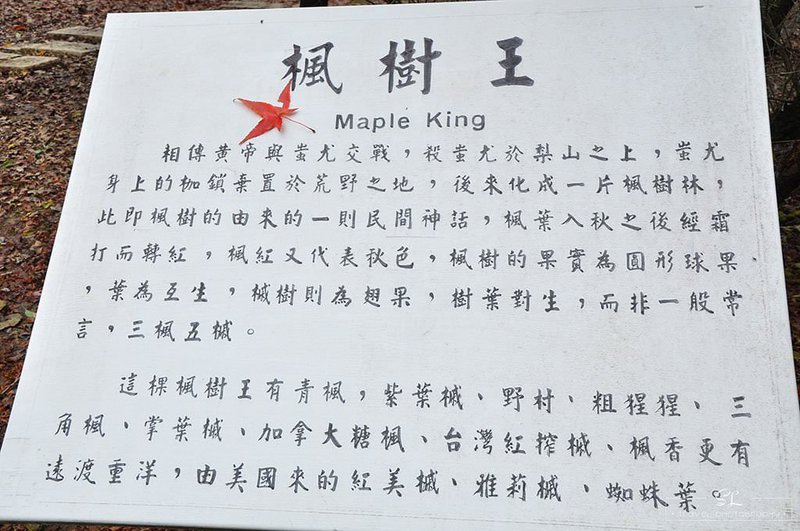 楓樹王
Maple King
相傳黄帝與蚩尤交戰，殺蚩尤於梨山之上，蚩尤
身上的枷鎖棄置於荒野之地，後來化成一片楓樹林，
此即楓樹的由來的一則民間神話，楓葉入秋之後經霜
打而轉紅，楓紅又代表秋色，楓樹的果實為圓形球果
，葉為互生，槭樹則為翅果，樹葉對生，而非一般常
言，三楓五槭。
這棵楓樹王有青楓，紫葉槭、野村、粗猩猩、三
角楓、掌葉槭、加拿大糖楓、台灣紅搾槭、楓香更有
遠渡重洋，由美國來的紅美槭、雅莉槭、蜘蛛葉。